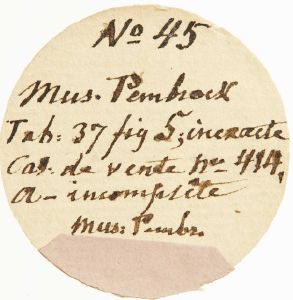 No 45
Mus. Pembrock
Tab: 37 fig 5; inexacte
Cat. de vente No 414,
a - incomplète
Mus: Pembr.